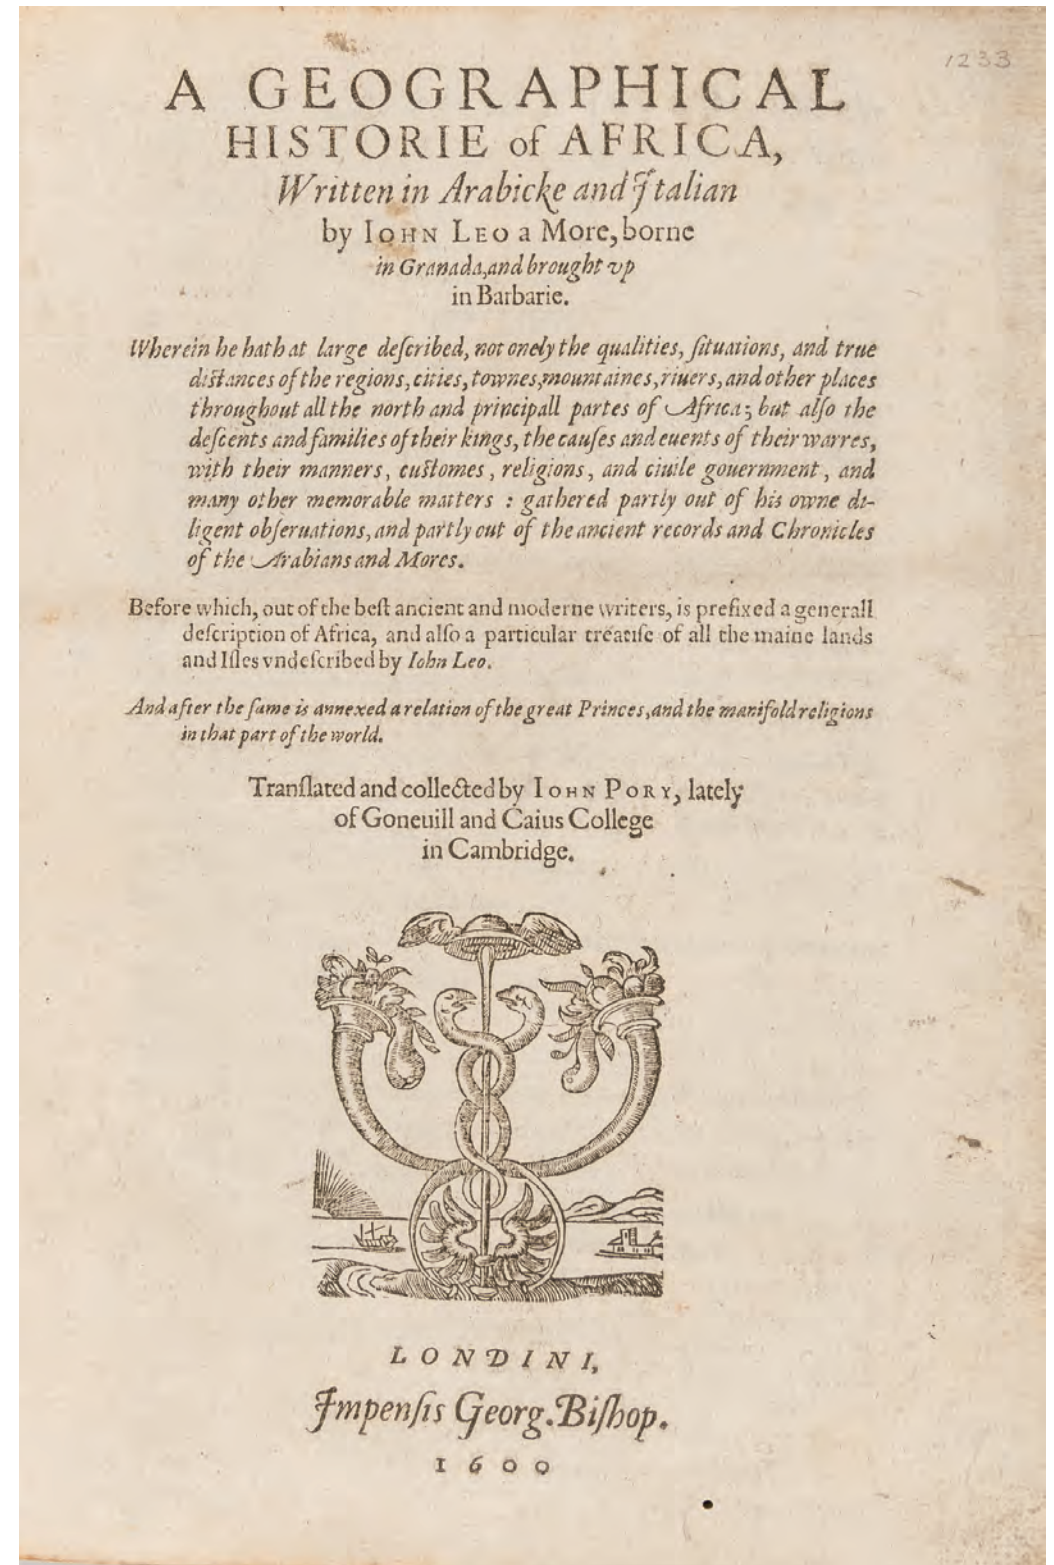 1233
A GEOGRAPHICAL
HISTORIE of AFRICA,
Written in Arabicke and Italian
by IOHN LEO a More, borne
in Granada, and brought vp
in Barbarie.
Wherein he hath at large deſcribed, not onely the qualities, ſituations, and true
diſtances of the regions, cities, townes, mountaines, riuers, and other places
throughout all the north and principall partes of Africa; but alſo the
deſcents and families of their kings, the cauſes and euents of their warres,
with their manners, cuſtomes, religions, and ciuile gouernment, and
many other memorable matters : gathered partly out of his owne di-
ligent obſeruations, and partly out of the ancient records and Chronicles
of the Arabians and Mores.
Before which, out of the beſt ancient and moderne writers, is prefixed a generall
deſcription of Africa, and alſo a particular treatiſe of all the maine lands
and Iſles vndeſcribed by Iohn Leo.
And after the ſame is annexed a relation of the great Princes, and the manifold religions
in that part of the world.
Tranſlated and collected by IOHN PORY, lately
of Goneuill and Caius College
in Cambridge.
LONDINI,
Impenſis Georg. Biſhop.
1600